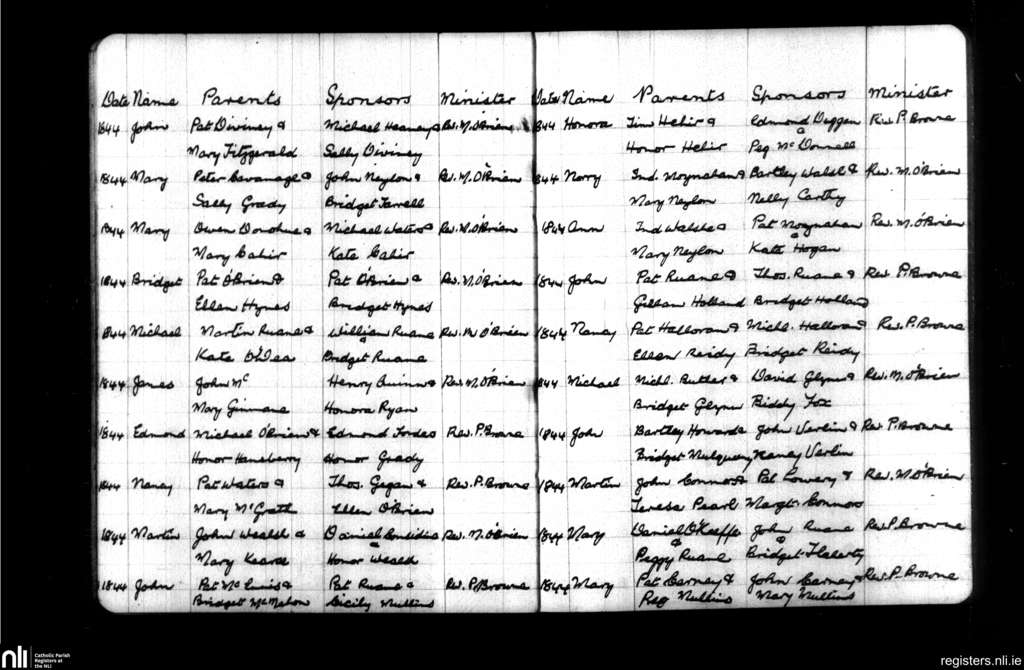 Date Name Parents Sponsors Minister
1844 John Pat Diviney & Michael Heaney & Rev. M. O'Brien
Mary Fitzgerald Sally Diviney
1844 Mary Peter Cavanagh & John Neylon & Rev. M. O'Brien
Sally Grady Bridget Farrell
1844 Mary Owen Donohue & Michael Waters & Rev. M. O'Brien
Mary Cahir Kate Cahir
1844 Bridget Pat O'Brien & Pat O'Brien & Rev. M. O'Brien
Ellen Hynes Bridget Hynes
1844 Michael Martin Ruane & William Ruane Rev. M O'Brien
Kate O'Dea Bridget Ruane
1844 James John Mc Henry Quinn & Rev. M. O'Brien
Mary Ginnane Honora Ryan
1844 Edmond Michael O'Brien & Edmond Fordes Rev. P. Browne
Honor Haneberry Honor Grady
1844 Nancy Pat Waters & Thos. Gegan & Rev. P. Browne
Mary McGrath Ellen O'Brien
1844 Martin John Wealsh & Daniel & Rev. M. O'Brien
Mary Honor
1844 John Pat & Pat Ruane & Rev. P. Browne
Bridget McMahon Cicily Mullins
Date Name Parents Sponsors Minister
1844 Honora Tim Hehir & Edmond Duggan & Rev P. Browne
Honor Hehir Peg McDonnell
1844 Norry Ind. Moynahan & Bartley Walsh & Rev. M. O'Brien
Mary Neylon Nelly Carthy
1844 Ann Ind Walshe & Pat Moynahan & Rev. M. O'Brien
Mary Neylon Kate Hogan
1844 John Pat Ruane & Thos. Ruane & Rev. P. Browne
Gillian Holland Bridget Holland
1844 Nancy Pat Halloran & Michl. Halloran & Rev. P. Browne
Ellen Reidy Bridget Reidy
1844 Michael Michl. Butler & David Glynn & Rev. M. O'Brien
Bridget Glynn Biddy Fox
1844 John Bartley Howard & John Verlin & Rev P. Browne
Bridget Mulqueny Nancy Verlin
1844 Martin John Connors & Pat Lowery & Rev. M. O'Brien
Teresa Pearl Margt. Connors
1844 Mary Daniel O'Keeffe & John Ruane & Rev P. Browne
Peggy Ruane Bridget Flaherty
1844 Mary Pat Carney & John Carney & Rev. P. Browne
Peg Mullins Mary Mullins
nli Catholic Parish Registers at the NLI
registers.nli.ie